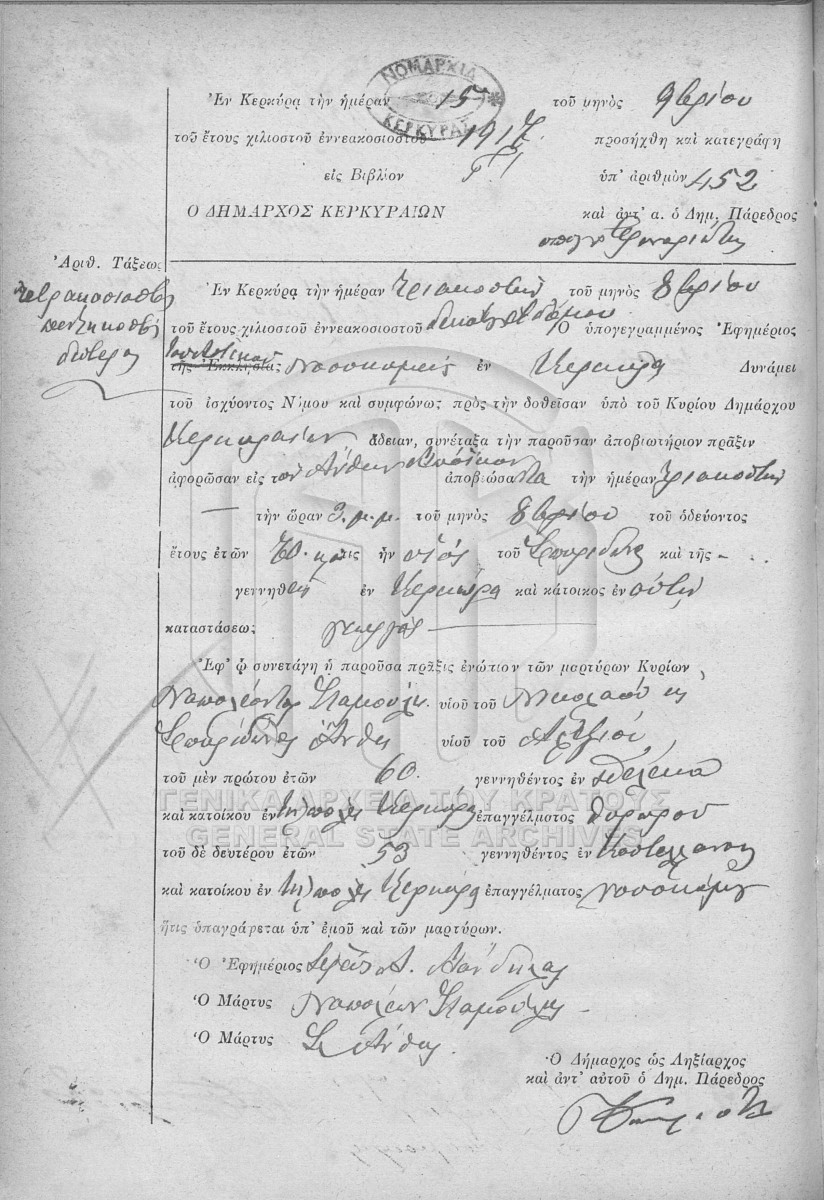 ΝΟΜΑΡΧΙΑ
ΚΕΡΚΥΡΑΣ
Ἐν Κερκύρᾳ τὴν ἡμέραν 15 τοῦ μηνὸς 9βρίου
τοῦ ἔτους χιλιοστοῦ ἐννεακοσιοστοῦ 1917 προσήχθη καὶ κατεγράφη
εἰς Βιβλίον ὑπ' ἀριθμὸν 452
Ο ΔΗΜΑΡΧΟΣ ΚΕΡΚΥΡΑΙΩΝ καὶ ἀντ' α. ὁ Δημ. Πάρεδρος
Ἀριθ. Τάξεως
τετρακοσιοστὴ
πεντηκοστὴ
δευτέρα
Ἐν Κερκύρᾳ τὴν ἡμέραν τριακοστὴν τοῦ μηνὸς 8βρίου
τοῦ ἔτους χιλιοστοῦ ἐννεακοσιοστοῦ δεκάτου ἑβδόμου Ὁ ὑπογεγραμμένος Ἐφημέριος
τῆς Ἐκκλησίας ἐν Κερκύρᾳ Δυνάμει
τοῦ ἰσχύοντος Νόμου καὶ συμφώνως πρὸς τὴν δοθεῖσαν ὑπὸ τοῦ Κυρίου Δημάρχου
Κερκυραίων ἄδειαν, συνέταξα τὴν παροῦσαν ἀποβιωτήριον πρᾶξιν
ἀφορῶσαν εἰς τὸν ἀποβιώσαντα τὴν ἡμέραν τριακοστὴν
τὴν ὥραν 3. μ.μ. τοῦ μηνὸς 8βρίου τοῦ ὁδεύοντος
ἔτους ἐτῶν ἦν υἱὸς τοῦ Σπυρίδωνος καὶ τῆς -
γεννηθεὶς ἐν Κερκύρᾳ καὶ κάτοικος ἐν αὐτῇ
καταστάσεως γεωργὸς
Ἐφ' ᾧ συνετάγη ἡ παροῦσα πρᾶξις ἐνώπιον τῶν μαρτύρων Κυρίων
Ναπολέοντος Σταμούλη υἱοῦ τοῦ Νικολάου κ
Σπυρίδωνος Ἄνθη υἱοῦ τοῦ Ἀλεξίου
τοῦ μὲν πρώτου ἐτῶν 60. γεννηθέντος ἐν Πέλεκα
ΓΕΝΙΚΑ ΑΡΧΕΙΑ ΤΟΥ ΚΡΑΤΟΥΣ
καὶ κατοίκου ἐν τῇ πόλει Κερκύρᾳ ἐπαγγέλματος θυρωροῦ
GENERAL STATE ARCHIVES
τοῦ δὲ δευτέρου ἐτῶν 53 γεννηθέντος ἐν
καὶ κατοίκου ἐν τῇ πόλει Κερκύρᾳ ἐπαγγέλματος νοσοκόμου
ἥτις ὑπαγράφεται ὑπ' ἐμοῦ καὶ τῶν μαρτύρων.
Ὁ Ἐφημέριος
Ὁ Μάρτυς Ναπολέων Σταμούλης
Ὁ Μάρτυς Σ. Ἄνθης
Ὁ Δήμαρχος ὡς Ληξίαρχος
καὶ ἀντ' αὐτοῦ ὁ Δημ. Πάρεδρος